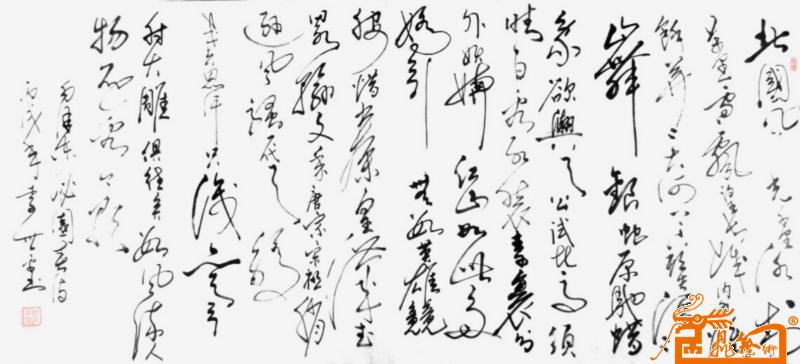 北國風光千里冰封
萬里雪飄望長城內外惟
餘莽莽大河上下頓失滔
山舞銀蛇原馳蜡
象欲與天公試比高須
晴日看紅裝素裹分
外妖嬈江山如此多
嬌引無數英雄競
腰惜秦皇漢武
略輸文采唐宗宋祖稍
遜風騷一代天驕
成吉思汗只識彎弓
射大雕俱往矣數風流人
物還看今朝
毛澤東沁園春詩
丙戌年李世